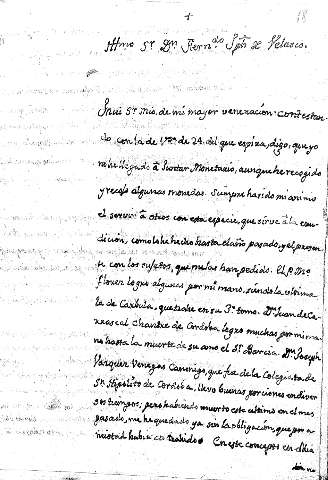 +
18
Illmo Sr. Dn. Fern.do Jph de Velasco.
Mui Sr. mio, de mi mayor veneracion: Contestan
do, con la de V.S. de 24. del que espira, digo, que yo
no he llegado à juntar Monetario, aunque he recogido
y recojo algunas monedas. Siempre ha sido mi animo
el servir à otros con esta especie, que sirve à la eru
dicion, como lo he hecho hasta el año pasado, y el presen
te con los sugetos, que me las han pedido. El P. Mo.
florez logrò algunas por mi mano, siendo la ultima
la de Carbula, que trahe en su 3o. tomo. Dn. Juan de Ca-
rrascal Chantre de Cordoba logrò muchas por mi ma
no hasta la muerte de su amo el Sr. Barcia. Dn. Joseph
Vazquez Venegas Canonigo, que fue de la Colegiata de
Sn. Hipolito de Cordoba, llevò buenas porciones en diver
sos tiempos; pero habiendo muerto este ultimo en el mes
pasado, me he quedado ya sin la obligacion, que por a
mistad habia contrahido. En este concepto